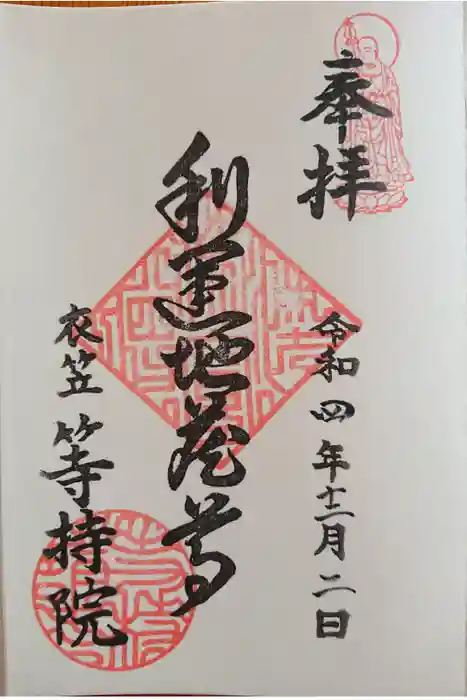 奉拝
令和四年十二月二日
利運地蔵尊
衣笠 等持院